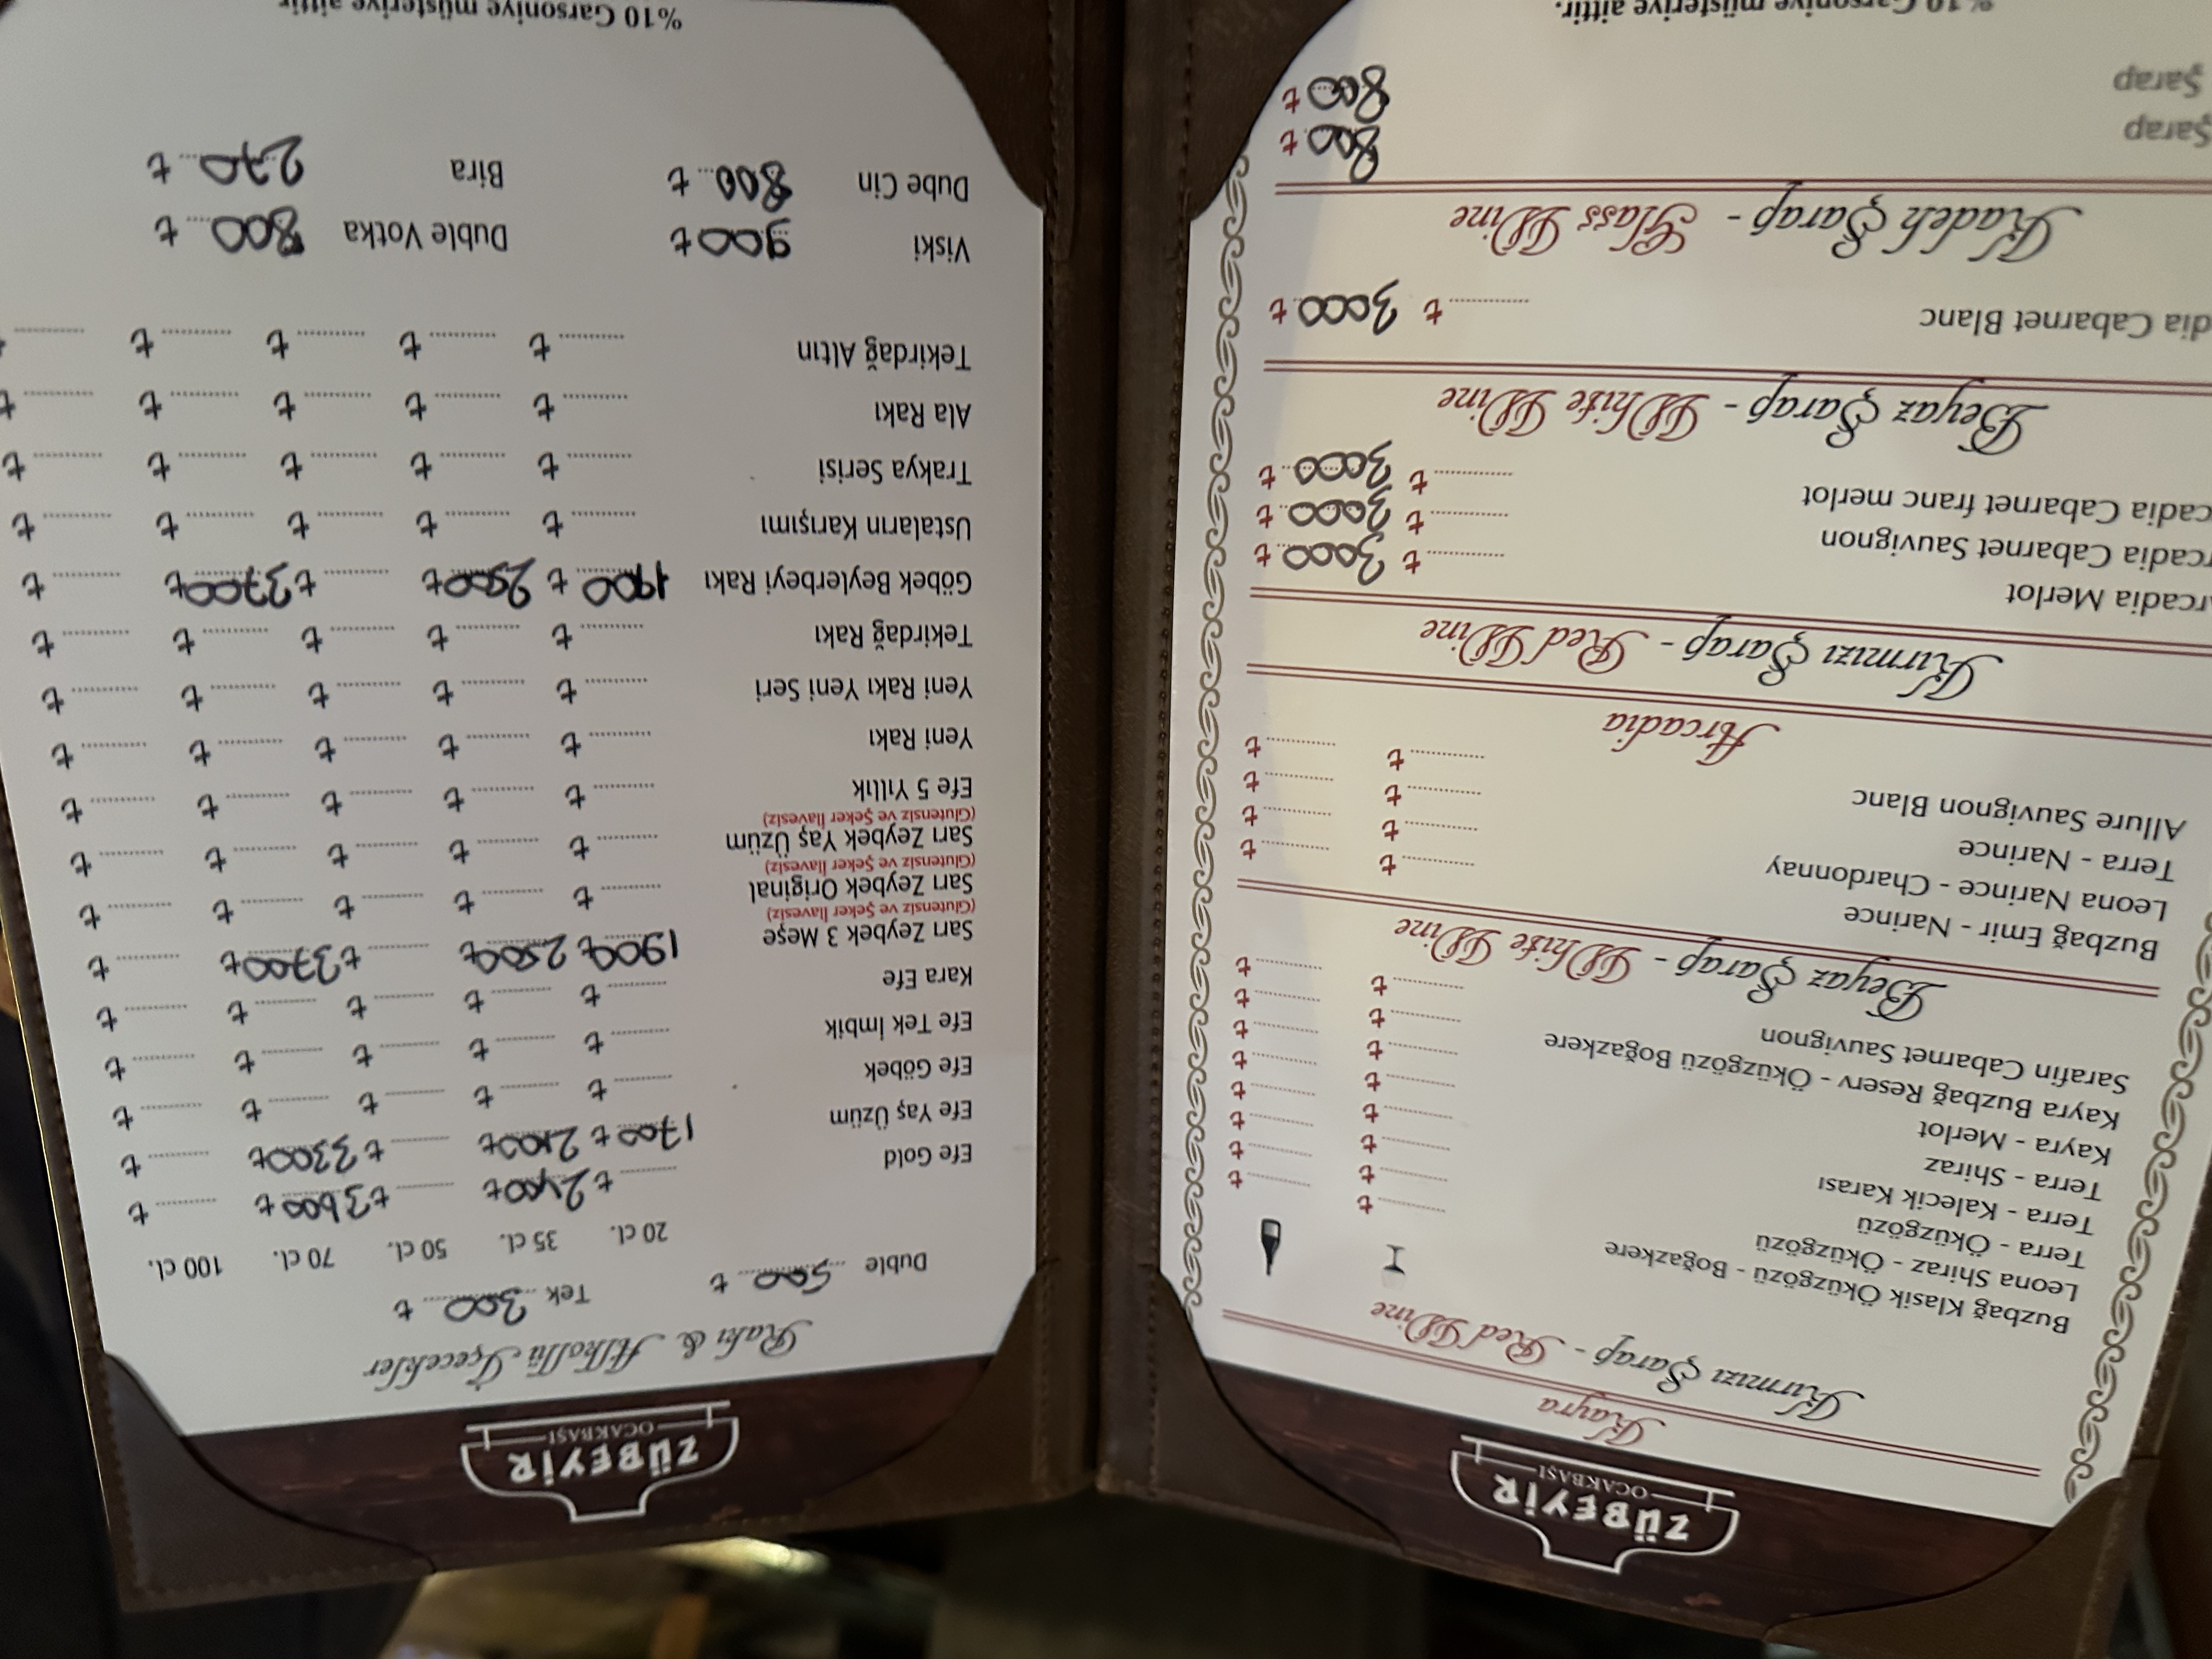 ZÜBEYİR
OCAKBAŞI
Kayra
Kırmızı Şarap - Red Wine
Buzbağ Klasik Öküzgözü - Boğazkere ₺ ₺
Leona Shiraz - Öküzgözü ₺ ₺
Terra - Öküzgözü ₺ ₺
Terra - Kalecik Karası ₺ ₺
Terra - Shiraz ₺ ₺
Kayra - Merlot ₺ ₺
Kayra Buzbağ Reserv - Öküzgözü Boğazkere ₺ ₺
Sarafin Cabarnet Sauvignon ₺ ₺
Beyaz Şarap - White Wine
Buzbağ Emir - Narince ₺ ₺
Leona Narince - Chardonnay ₺ ₺
Terra - Narince ₺ ₺
Allure Sauvignon Blanc ₺ ₺
Arcadia
Kırmızı Şarap - Red Wine
rcadia Merlot ₺ 3000 ₺
rcadia Cabarnet Sauvignon ₺ 3000 ₺
cadia Cabarnet franc merlot ₺ 3000 ₺
Beyaz Şarap - White Wine
dia Cabarnet Blanc ₺ 3000 ₺
Kadeh Şarap - Glass Wine
Şarap 800 ₺
Şarap 800 ₺
%10 Garsoniye müşteriye aittir.
ZÜBEYİR
OCAKBAŞI
Rakı & Alkollü İçecekler
Duble 500 ₺ Tek 300 ₺
20 cl. 35 cl. 50 cl. 70 cl. 100 cl.
Efe Gold ₺ 2400 ₺ ₺ 3600 ₺ ₺
Efe Yaş Üzüm 1700 ₺ 2100 ₺ ₺ 3300 ₺ ₺
Efe Göbek ₺ ₺ ₺ ₺ ₺
Efe Tek İmbik ₺ ₺ ₺ ₺ ₺
Kara Efe ₺ ₺ ₺ ₺ ₺
Sarı Zeybek 3 Meşe 1900 ₺ 2500 ₺ ₺ 3700 ₺ ₺
(Glutensiz ve Şeker İlavesiz)
Sarı Zeybek Original ₺ ₺ ₺ ₺ ₺
(Glutensiz ve Şeker İlavesiz)
Sarı Zeybek Yaş Üzüm ₺ ₺ ₺ ₺ ₺
(Glutensiz ve Şeker İlavesiz)
Efe 5 Yıllık ₺ ₺ ₺ ₺ ₺
Yeni Rakı ₺ ₺ ₺ ₺ ₺
Yeni Rakı Yeni Seri ₺ ₺ ₺ ₺ ₺
Tekirdağ Rakı ₺ ₺ ₺ ₺ ₺
Göbek Beylerbeyi Rakı 1900 ₺ 2500 ₺ ₺ 3700 ₺ ₺
Ustaların Karışımı ₺ ₺ ₺ ₺ ₺
Trakya Serisi ₺ ₺ ₺ ₺ ₺
Ala Rakı ₺ ₺ ₺ ₺ ₺
Tekirdağ Altın ₺ ₺ ₺ ₺ ₺
Viski 900 ₺ Duble Votka 800 ₺
Dube Cin 800 ₺ Bira 270 ₺
%10 Garsoniye müşteriye aittir.